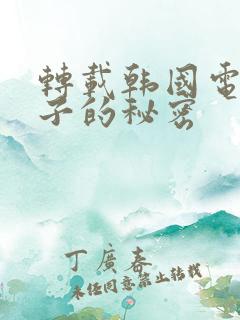 轉載韩国電
子的秘密
丁廣春
未经同意禁止转载